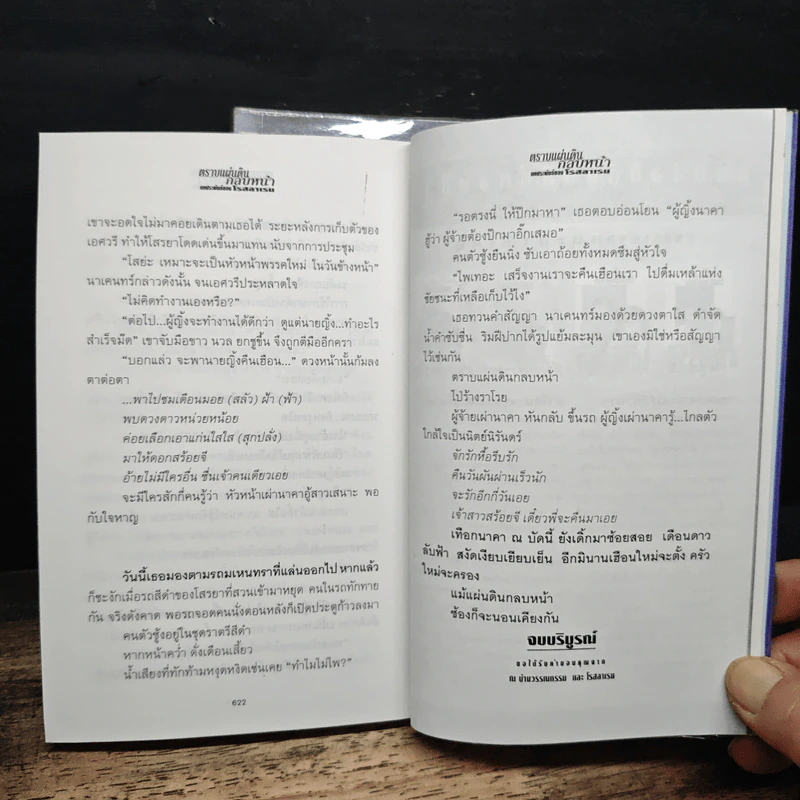 ตราบแผ่นดิน
กลบหน้า
บทประพันธ์ของ โรสลาเรน
เขาจะอดใจไม่มาคอยเดินตามเธอได้ ระยะหลังการเก็บตัวของ
เอศวรี ทำให้โสรยาโดดเด่นขึ้นมาแทน นับจากการประชุม
“โสย่ะ เหมาะจะเป็นหัวหน้าพรรคใหม่ ในวันข้างหน้า”
นาเคนทร์กล่าวดังนั้น จนเอศวรีประหลาดใจ
“ไม่คิดทำงานเองหรือ?”
“ต่อไป...ผู้ญิ้งจะทำงานได้ดีกว่า ดูแต่นายญิ้ง...ทำอะไร
สำเร็จมืด” เขาจับมือขาว นวล ยกชูขึ้น จึงถูกตีมืออีกครา
“บอกแล้ว จะพานายญิ้งคืนเฮือน...” ดวงหน้านั้นก้มลง
ตาต่อตา
...พาไปชมเดือนมอย (สลัว) ฝ้า (ฟ้า)
พบดวงดาวหน่วยหน้อย
ค่อยเลือกเอาแก่นใสใส (สุกปลั่ง)
มาให้ดอกสร้อยจี
อ้ายไม่มีใครอื่น ชื่นเจ้าคนเดียวเอย
จะมีใครสักกี่คนรู้ว่า หัวหน้าเผ่านาคาอู้สาวเสนาะ พอ
กับใจหาญ
วันนี้เธอมองตามรถมเหนทราที่แล่นออกไป หากแล้ว
ก็ชะงักเมื่อรถสีดำของโสรยาที่สวนเข้ามาหยุด คนในรถทักทาย
กัน จริงดังคาด พอรถจอดคนนั่งตอนหลังก็เปิดประตูก้าวลงมา
คนตัวซู้งอยู่ในชุดราตรีสีดำ
หากหน้าคว่ำ ดั่งเดือนเสี้ยว
น้ำเสียงที่ทักท้ามหงุดหงิดเช่นเคย “ทำไมไม่ไพ?”
622
ตราบแผ่นดิน
กลบหน้า
บทประพันธ์ของ โรสลาเรน
“รอตรงนี่ ให้ปึกมาหา” เธอตอบอ่อนโยน “ผู้ญิ้งนาคา
ฮู้ว่า ผู้จ้ายต้องปึกมาอิ๊กเสมอ”
คนตัวซู้งยืนนิ่ง ซับเอาถ้อยทั้งหมดซึมสู่หัวใจ
“ไพเทอะ เสร็จงานเราจะคืนเฮือนเรา ไปดื่มเหล้าแห่ง
ชัยชนะที่เหลือเก็บไว้ไง”
เธอทวนคำสัญญา นาเคนทร์มองด้วยดวงตาใส ดำจัด
น้ำคำขับชื่น ริมฝีปากได้รูปแย้มละมุน เขาเองมิใช่หรือสัญญา
ไว้เช่นกัน
ตราบแผ่นดินกลบหน้า
ไป่ร้างราโรย
ผู้จ้ายเผ่านาคา หันกลับ ขึ้นรถ ผู้ญิ้งเผ่านาคารู้...ไกลตัว
ใกล้ใจเป็นนิตย์นิรันดร์
จักรักหื้อรีบรัก
คืนวันผันผ่านเร็วนัก
จะรักอีกกี่วันเอย
เจ้าสาวสร้อยจี เดี๋ยวพี่จะคืนมาเอย
เทือกนาคา ณ บัดนี้ ยังเด็กมาซ้อยสอย เดือนดาว
ลับฟ้า สงัดเงียบเยียบเย็น อีกมินานเฮือนใหม่จะตั้ง ครัว
ใหม่จะครอง
แม้แผ่นดินกลบหน้า
ซ้องก็จะนอนเคียงกัน
จบบริบูรณ์
ขอได้รับคำขอบคุณจาก
ณ บ้านวรรณกรรม และ โรสลาเรน